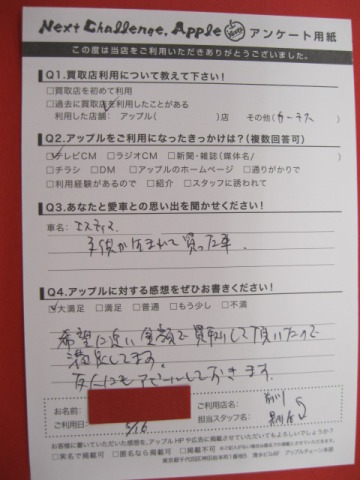 Next Challenge. Apple アンケート用紙
この度は当店をご利用いただきありがとうございました。
Q1.買取店利用について教えて下さい!
□買取店を初めて利用
□過去に買取店を利用したことがある
利用した店舗: アップル( )店 その他(カーチス)
Q2.アップルをご利用になったきっかけは?(複数回答可)
□テレビCM □ラジオCM □新聞・雑誌(媒体名/ )
□チラシ □DM □アップルのホームページ □通りがかりで
□利用経験があるので □紹介 □スタッフに誘われて
Q3.あなたと愛車との思い出を聞かせください!
車名:エスティマ
子供が生まれて買った車.
Q4.アップルに対する感想をぜひお書きください!
□大満足 □満足 □普通 □もう少し □不満
希望に近い金額で買取りして頂いたので
満足してます。
友人にもアピールしておきます.
お名前:
ご利用日: 5/16
ご利用店名:
担当スタッフ名:
お客様に書いていただいた感想を、アップルHPや広告に掲載させていただいてもよろしいでしょうか?
□実名で掲載可 □匿名なら掲載可 □掲載不可